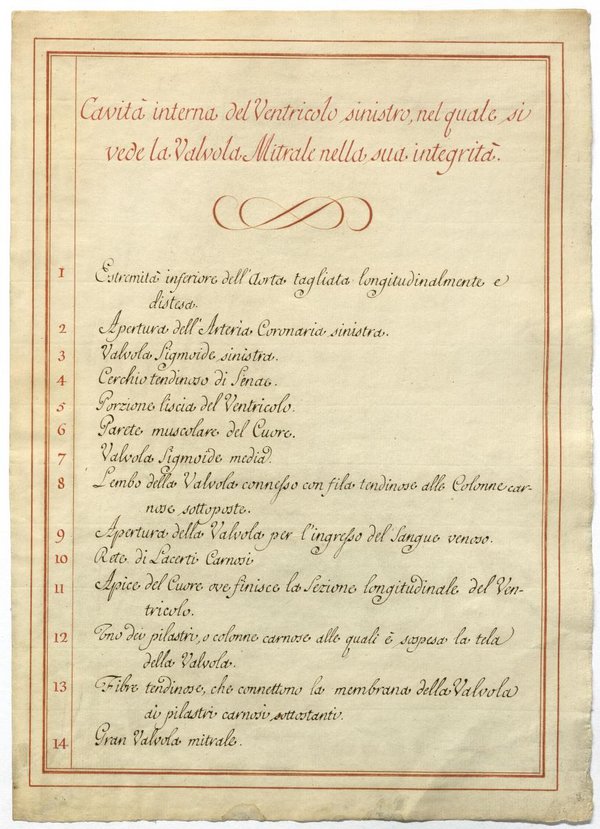 Cavità interna del Ventricolo sinistro, nel quale si
vede la Valvola Mitrale nella sua integrità.
1 Estremità inferiore dell'Aorta tagliata longitudinalmente e
distesa.
2 Apertura dell'Arteria Coronaria sinistra.
3 Valvola Sigmoide sinistra.
4 Cerchio tendinoso di Senac.
5 Porzione liscia del Ventricolo.
6 Parete muscolare del Cuore.
7 Valvola Sigmoide media.
8 Lembo della Valvola connesso con fila tendinose alle Colonne car-
nose sottoposte.
9 Apertura della Valvola per l'ingresso del Sangue venoso.
10 Rete di Lacerti Carnosi
11 Apice del Cuore ove finisce la Sezione longitudinale del Ven-
tricolo.
12 Uno dei pilastri, o colonne carnose alle quali è sospesa la tela
della Valvola.
13 Fibre tendinose, che connettono la membrana della Valvola
ai pilastri carnosi sottostanti.
14 Gran Valvola mitrale.